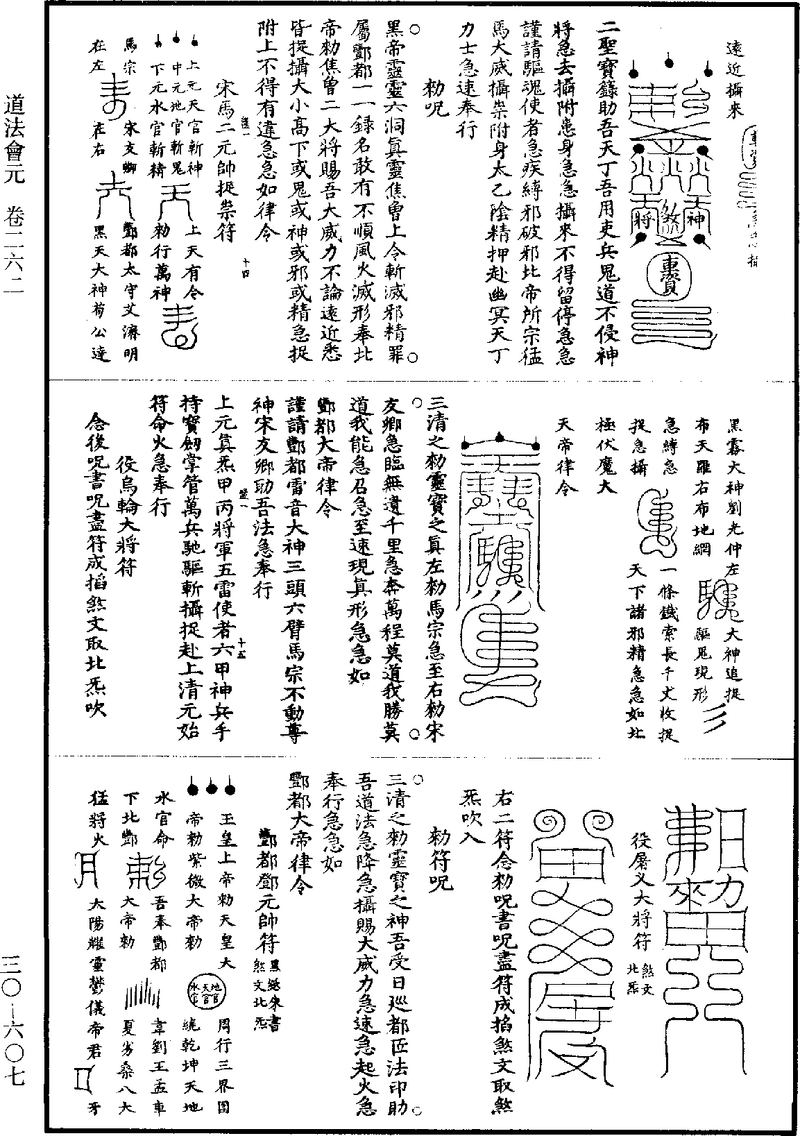 道法會元　卷二六二
三〇－六〇七
遠近攝來
神
將
煞
二聖寶籙助吾天丁吾用吏兵鬼道不侵神
將急去攝附患身急急攝來不得留停急急
謹請驅魂使者急疾縛邪破邪比帝所宗猛
馬大威攝祟附身太乙陰精押赴幽冥天丁
力士急速奉行
勑呪
黑帝靈靈六洞眞靈焦曾上令斬滅邪精罪
屬酆都一一錄名敢有不順風火滅形奉北
帝勑焦曾二大將賜吾大威力不論遠近悉
皆捉攝大小高下或鬼或神或邪或精急捉
附上不得有違急急如律令
十四
宋馬二元帥捉祟符
上元天官斬神
中元地官斬鬼
下元水官斬精
上天有令
勑行萬神
馬宗
在左
宋友卿
在右
酆都太守艾濟明
黑天大神荀公達
黑霧大神劉光仲左
布天羅右布地網
急縛急
捉急攝
大神追捉
驅鬼現形
一條鐵索長千丈收捉
天下諸邪精急急如北
極伏魔大
天帝律令
三清之勑靈寶之眞左勑馬宗急至右勑宋
友卿急臨無遺千里急奔萬程莫道我勝莫
道我能急召急至速現眞形急急如
酆都大帝律令
謹請酆都雷音大神三頭六臂馬宗不動尊
神宋友卿助吾法急奉行
十五
上元眞炁甲丙將軍五雷使者六甲神兵手
持寶劒掌管萬兵馳驅斬攝捉赴上清元始
符命火急奉行
役烏輪大將符
念後呪書呪盡符成掐煞文取北炁吹
役屠乂大將符
煞文
北炁
右二符念勑呪書呪盡符成掐煞文取煞
炁吹入
勑符呪
三清之勑靈寶之神吾受日巡都匝法印助
吾道法急降急攝賜大威力急速急起火急
奉行急急如
酆都大帝律令
酆都鄧元帥符
煞文北炁
玉皇上帝勑天皇大
帝勑紫微大帝勑
天官
地官
水官
周行三界圍
繞乾坤天地
水官命
下北酆
吾奉酆都
大帝勑
韋劉王孟車
夏劣桑八大
猛將火
太陽耀靈鬱儀帝君
牙